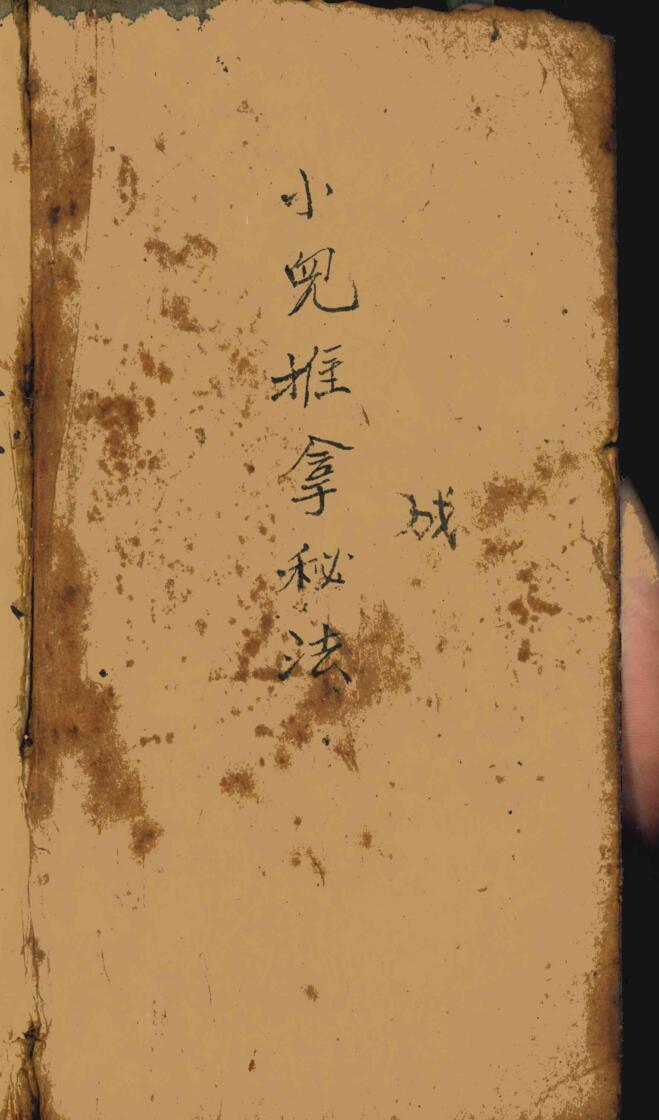 小兒推拿秘法